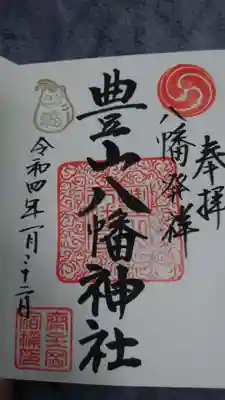 奉拝
八幡発祥
豊山八幡神社
令和四年一月二十二月